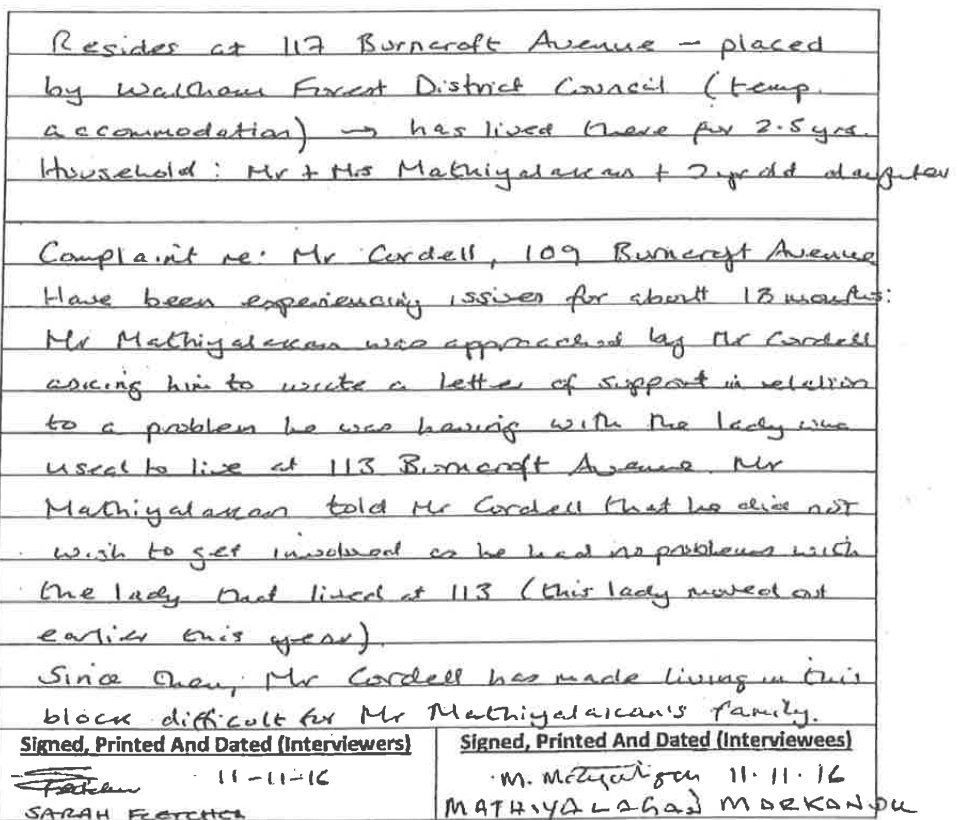 Resides at 117 Burncroft Avenue – placed
by Waltham Forest District Council (temp.
accommodation) → has lived there for 2.5yrs.
Household: Mr + Mrs Mathiyalakan + 2yr old daughter
Complaint re: Mr Cordell, 109 Burncroft Avenue
Have been experiencing issues for about 18 months:
Mr Mathiyalakan was approached by Mr Cordell
asking him to write a letter of support in relation
to a problem he was having with the lady who
used to live at 113 Burncroft Avenue. Mr
Mathiyalakan told Mr Cordell that he did not
wish to get involved as he had no problems with
the lady that lived at 113 (this lady moved out
earlier this year).
Since then, Mr Cordell has made living in this
block difficult for Mr Mathiyalakan's family.
Signed, Printed And Dated (Interviewers)
Fletcher 11-11-16
SARAH FLETCHER
Signed, Printed And Dated (Interviewees)
M. 11.11.16
MATHIYALAGAN MARKANDU